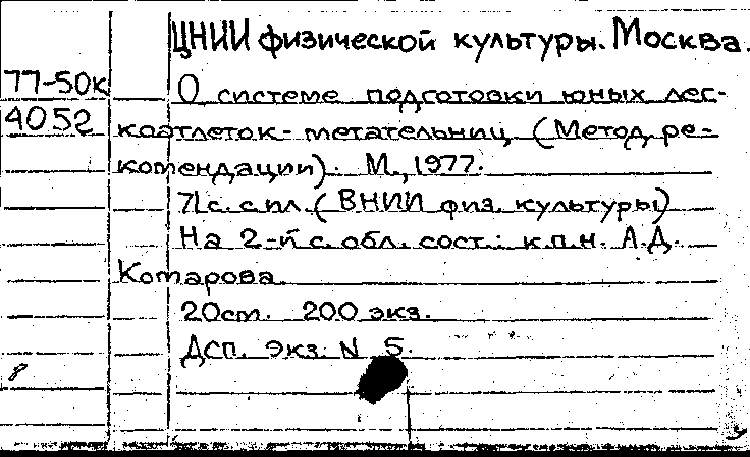 ЦНИИ физической культуры. Москва.
77-50к О системе подготовки юных лег-
4052 коатлеток-метательниц (Метод. ре-
комендации). М., 1977.
71с. с ил. (ВНИИ физ. культуры)
На 2-й с. обл. сост.: к.п.н. А.Д.
Комарова.
20см. 200 экз.
Дсп. Экз. N 5.
8